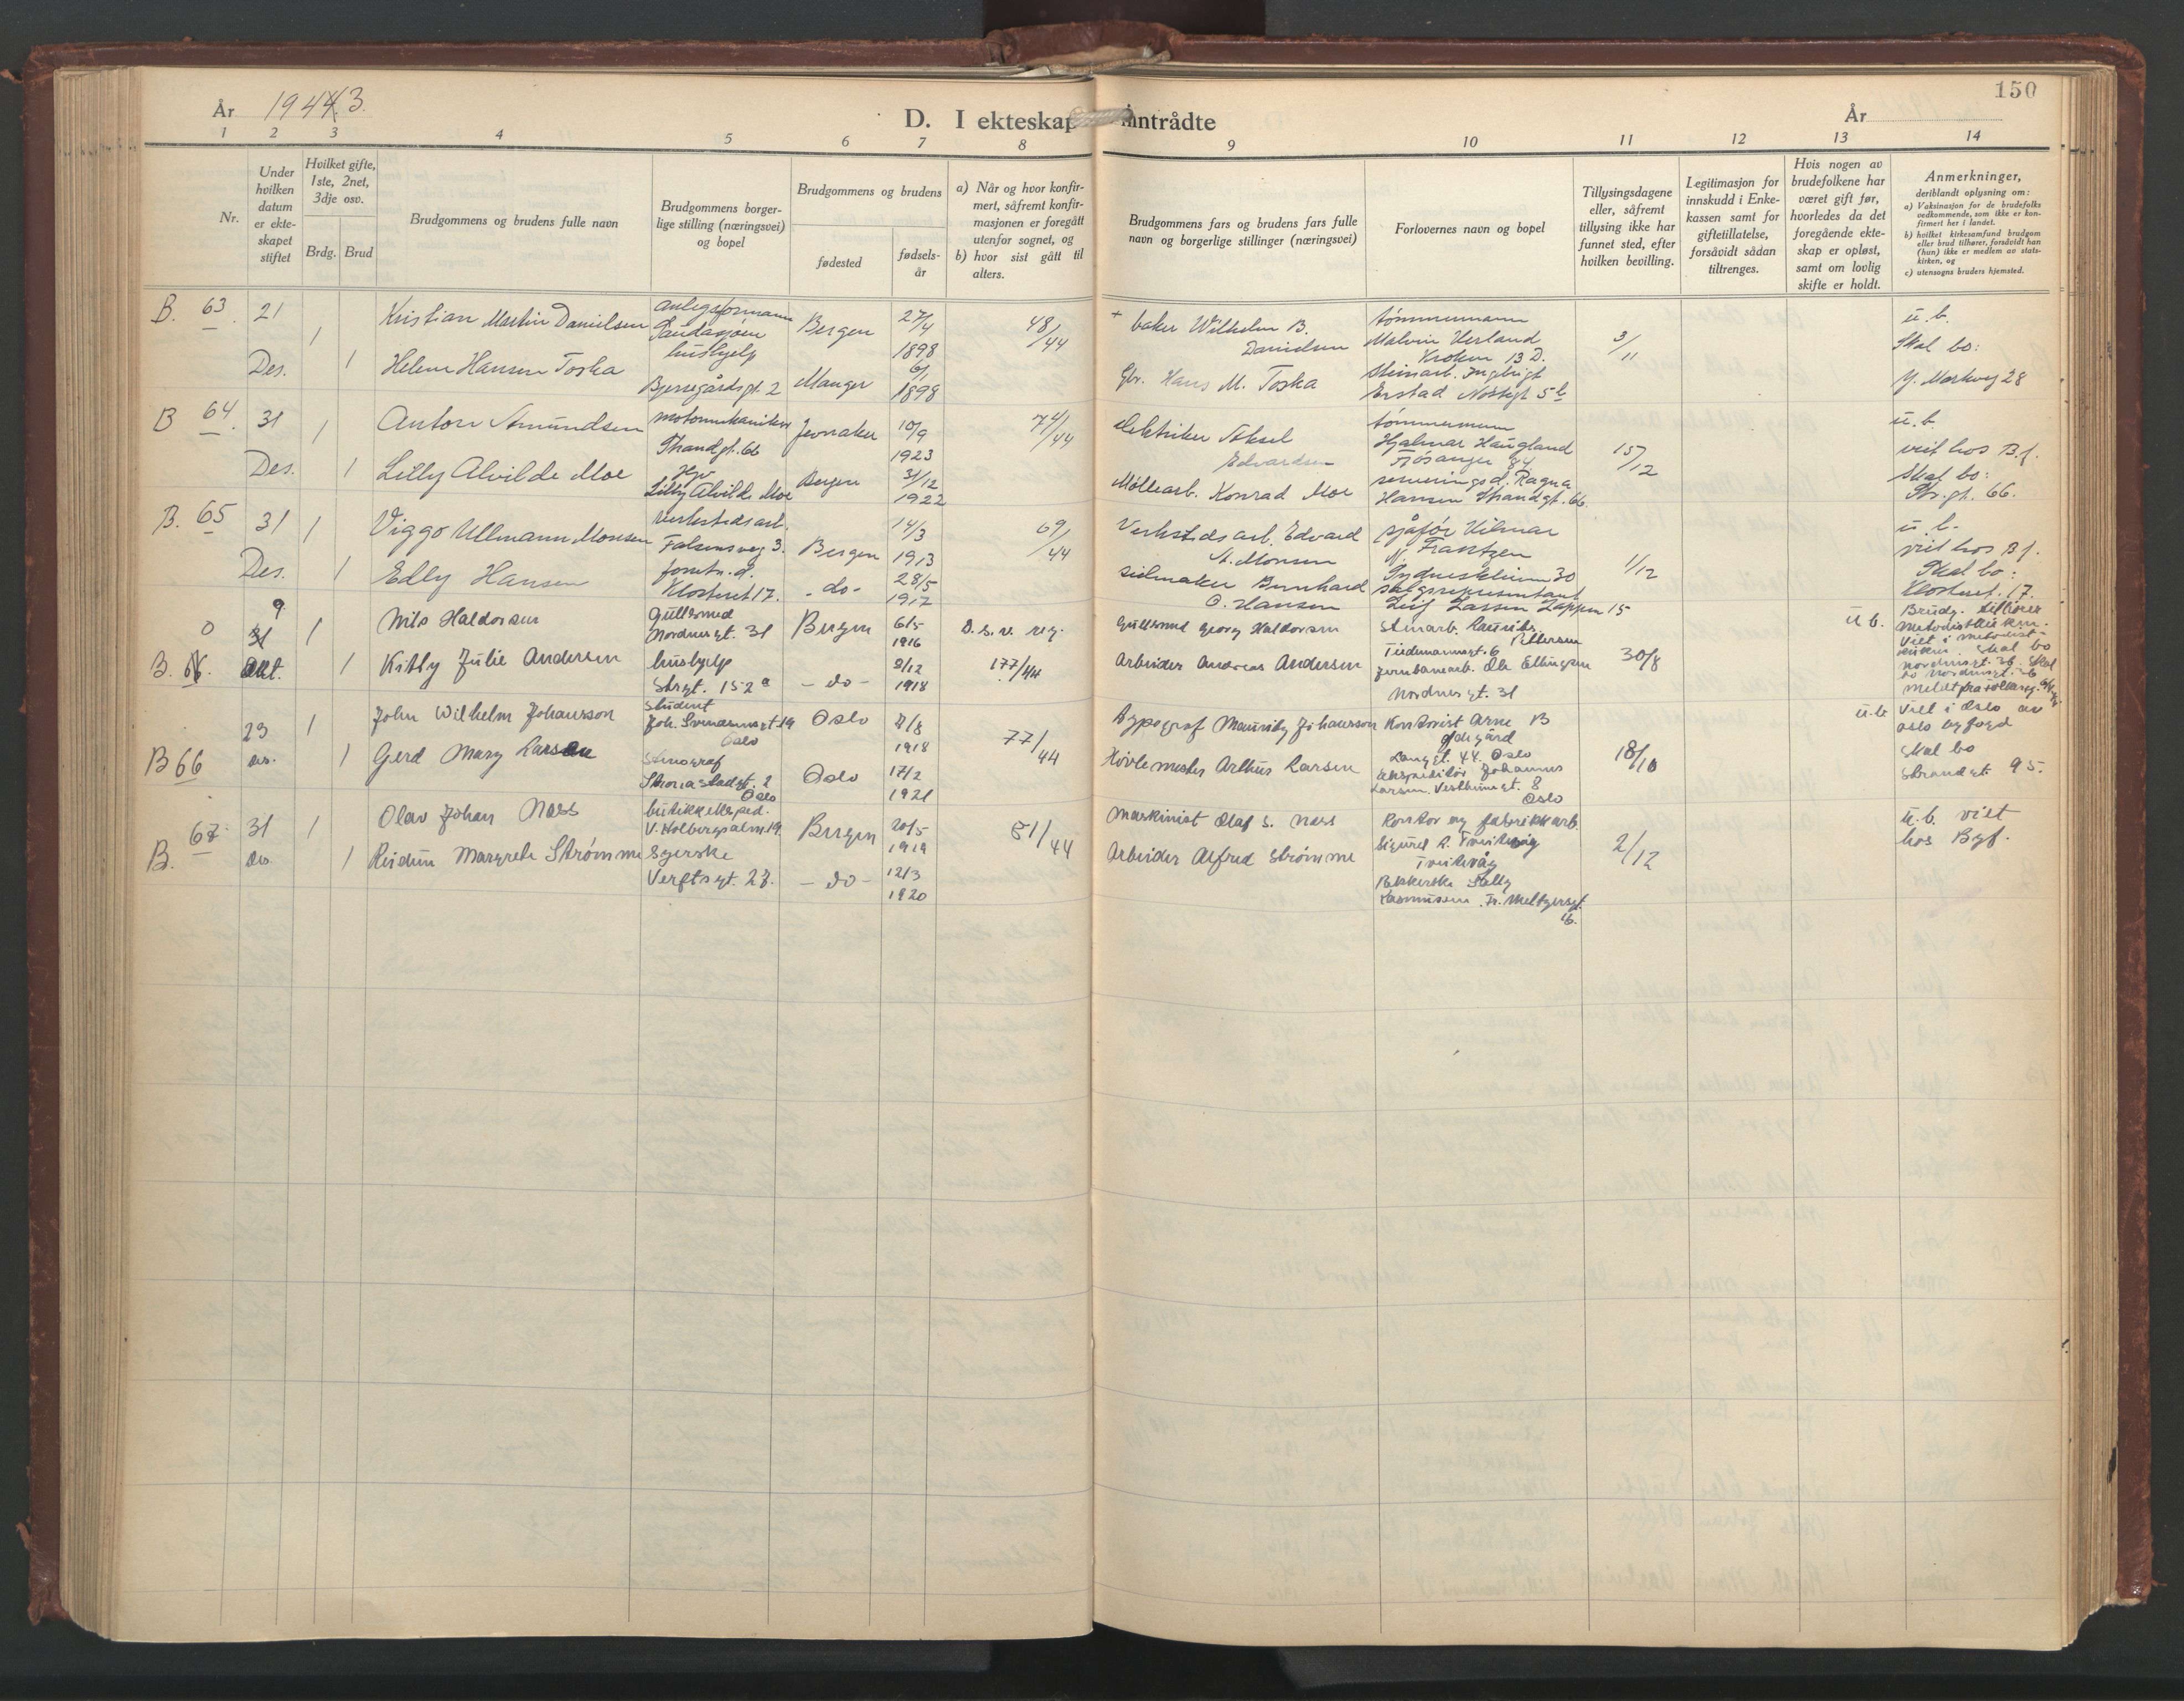 År 1944.3.
D. I ekteskap inntrådte
År
150
1 2 3 4 5 6 7 8 9 10 11 12 13 14
Nr.
Under hvilken datum er ekteskapet stiftet
Hvilket gifte, 1ste, 2net, 3dje osv.
Brdg. Brud
Brudgommens og brudens fulle navn
Brudgommens borgerlige stilling (næringsvei) og bopel
Brudgommens og brudens
fødested
fødselsår
a) Når og hvor konfirmert, såfremt konfirmasjonen er foregått utenfor sognet, og
b) hvor sist gått til alters.
Brudgommens fars og brudens fars fulle navn og borgerlige stillinger (næringsvei)
Forlovernes navn og bopel
Tillysingsdagene eller, såfremt tillysing ikke har funnet sted, efter hvilken bevilling.
Legitimasjon for innskudd i Enkekassen samt for giftetillatelse, forsåvidt sådan tiltrenges.
Hvis nogen av brudefolkene har været gift før, hvorledes da det foregående ekteskap er opløst, samt om lovlig skifte er holdt.
Anmerkninger,
deriblandt oplysning om:
a) Vaksinasjon for de brudefolks vedkommende, som ikke er konfirmert her i landet.
b) hvilket kirkesamfund brudgom eller brud tilhører, forsåvidt han (hun) ikke er medlem av statskirken, og
c) utensogns bruders hjemsted.
B. 63. 21 Des. 1 1
Kristian Martin Danielsen
Helene Hansen Toska
anlegsformann
hushjelp
Bjerregårdsgt. 2
Bergen
Manger
27/4
1898
6/1
1898
48/44
+ baker Wilhelm B.
Danielsen
Gbr. Hans M. Toska
tømmermann
Malvin Verland
Kroken 13 D.
steinarb. Ingebrigt
Erstad Nøstegt 5 b
3/11
u. b.
Skal bo:
Y. Markvey 28
B 64. 31 Des. 1 1
Anton Amundsen
Lilly Alvilde Moe
motormekaniker
Strandgt. 66
Hgv
Lilly Alvilde Moe
Jevnaker
Bergen
10/9
1923
31/12
1922
74/44
elektriker Aksel
Edvardsen
Møllearb. Konrad Moe
tømmermann
Hjalmar Haugland
Fjøsanger 84
serveringsd. Ragna
Hansen Strandgt. 66.
15/12
u. b.
viet hos B.f.
Skal bo:
Str.gt. 66.
B. 65 31 Des. 1 1
Viggo Ullmann Monsen
Edly Hansen
Verkstedsarb.
Falsensveg 3.
forretn. d.
Klosteret 17.
Bergen
- do -
14/3
1913
28/5
1917
69/44
Verkstedsarb. Edvard
A. Monsen
seilmaker Bernhard
O. Hansen
sjåfør Hilmar
N. Frantzen
Sydneskleiven 30
salgsrepresentant
Leif Larsen Lappen 15
1/12
u. b.
viet hos B.f.
Skal bo:
Klosteret. 17.
0 9 31 Okt. 1 1
B. 66.
Nils Haldorsen
Kitty Julie Andersen
Gullsmed
Nordnesgt. 31
hushjelp
Strgt. 152 a
Bergen
- do -
6/5
1916
9/12
1918
D. s. v. reg.
177/44
Gullsmed Georg Haldorsen
Arbeider Andreas Andersen
Stuarb. Lauritz
Pettersen
Tidemannsgt. 6
Jernbanearb. Ole Ellingsen
Nordnesgt. 31
30/8
u. b.
Brudg. tilhører
Metodistkirken.
Viet i Metodistkirken. Skal bo
Nordnesgt. 36. Skal
bo Nordnesgt. 36
23 des. 1 1
B 66
John Wilhelm Johansson
Gerd Mary Larsen
student
Joh. Svendsensgt 19
Oslo
Stenograf
Oslo
Oslo
Oslo
7/8
1918
17/2
1921
77/44
typograf Mauritz Johansson
Høvlemester Arthur Larsen
Kontorist Arne B
Langgt. 44. Oslo
ekspeditør Johannes
Larsen. Vestheimgt. 8
Oslo
18/10
u. b.
Viet i Oslo av
Oslo byfogd
Skal bo
Strandgt. 95.
B. 67. 31 des 1 1
Olav Johan Næss
Reidun Margrethe Strømme
butikkeksped.
V. Holbergsalm. 19.
Syerske
Verftsgt. 27.
Bergen
- do -
20/5
1919
12/3
1920
81/44
Maskinist Olaf S. Næss
Arbeider Alfred Strømme
Kontor og fabrikkarb.
Sigurd R. Tveitevåg
Tveitevåg
Pakkerske Selly
Rasmussen. Fr. Meltzersgt.
16.
2/12
u. b. viet
hos Byf.